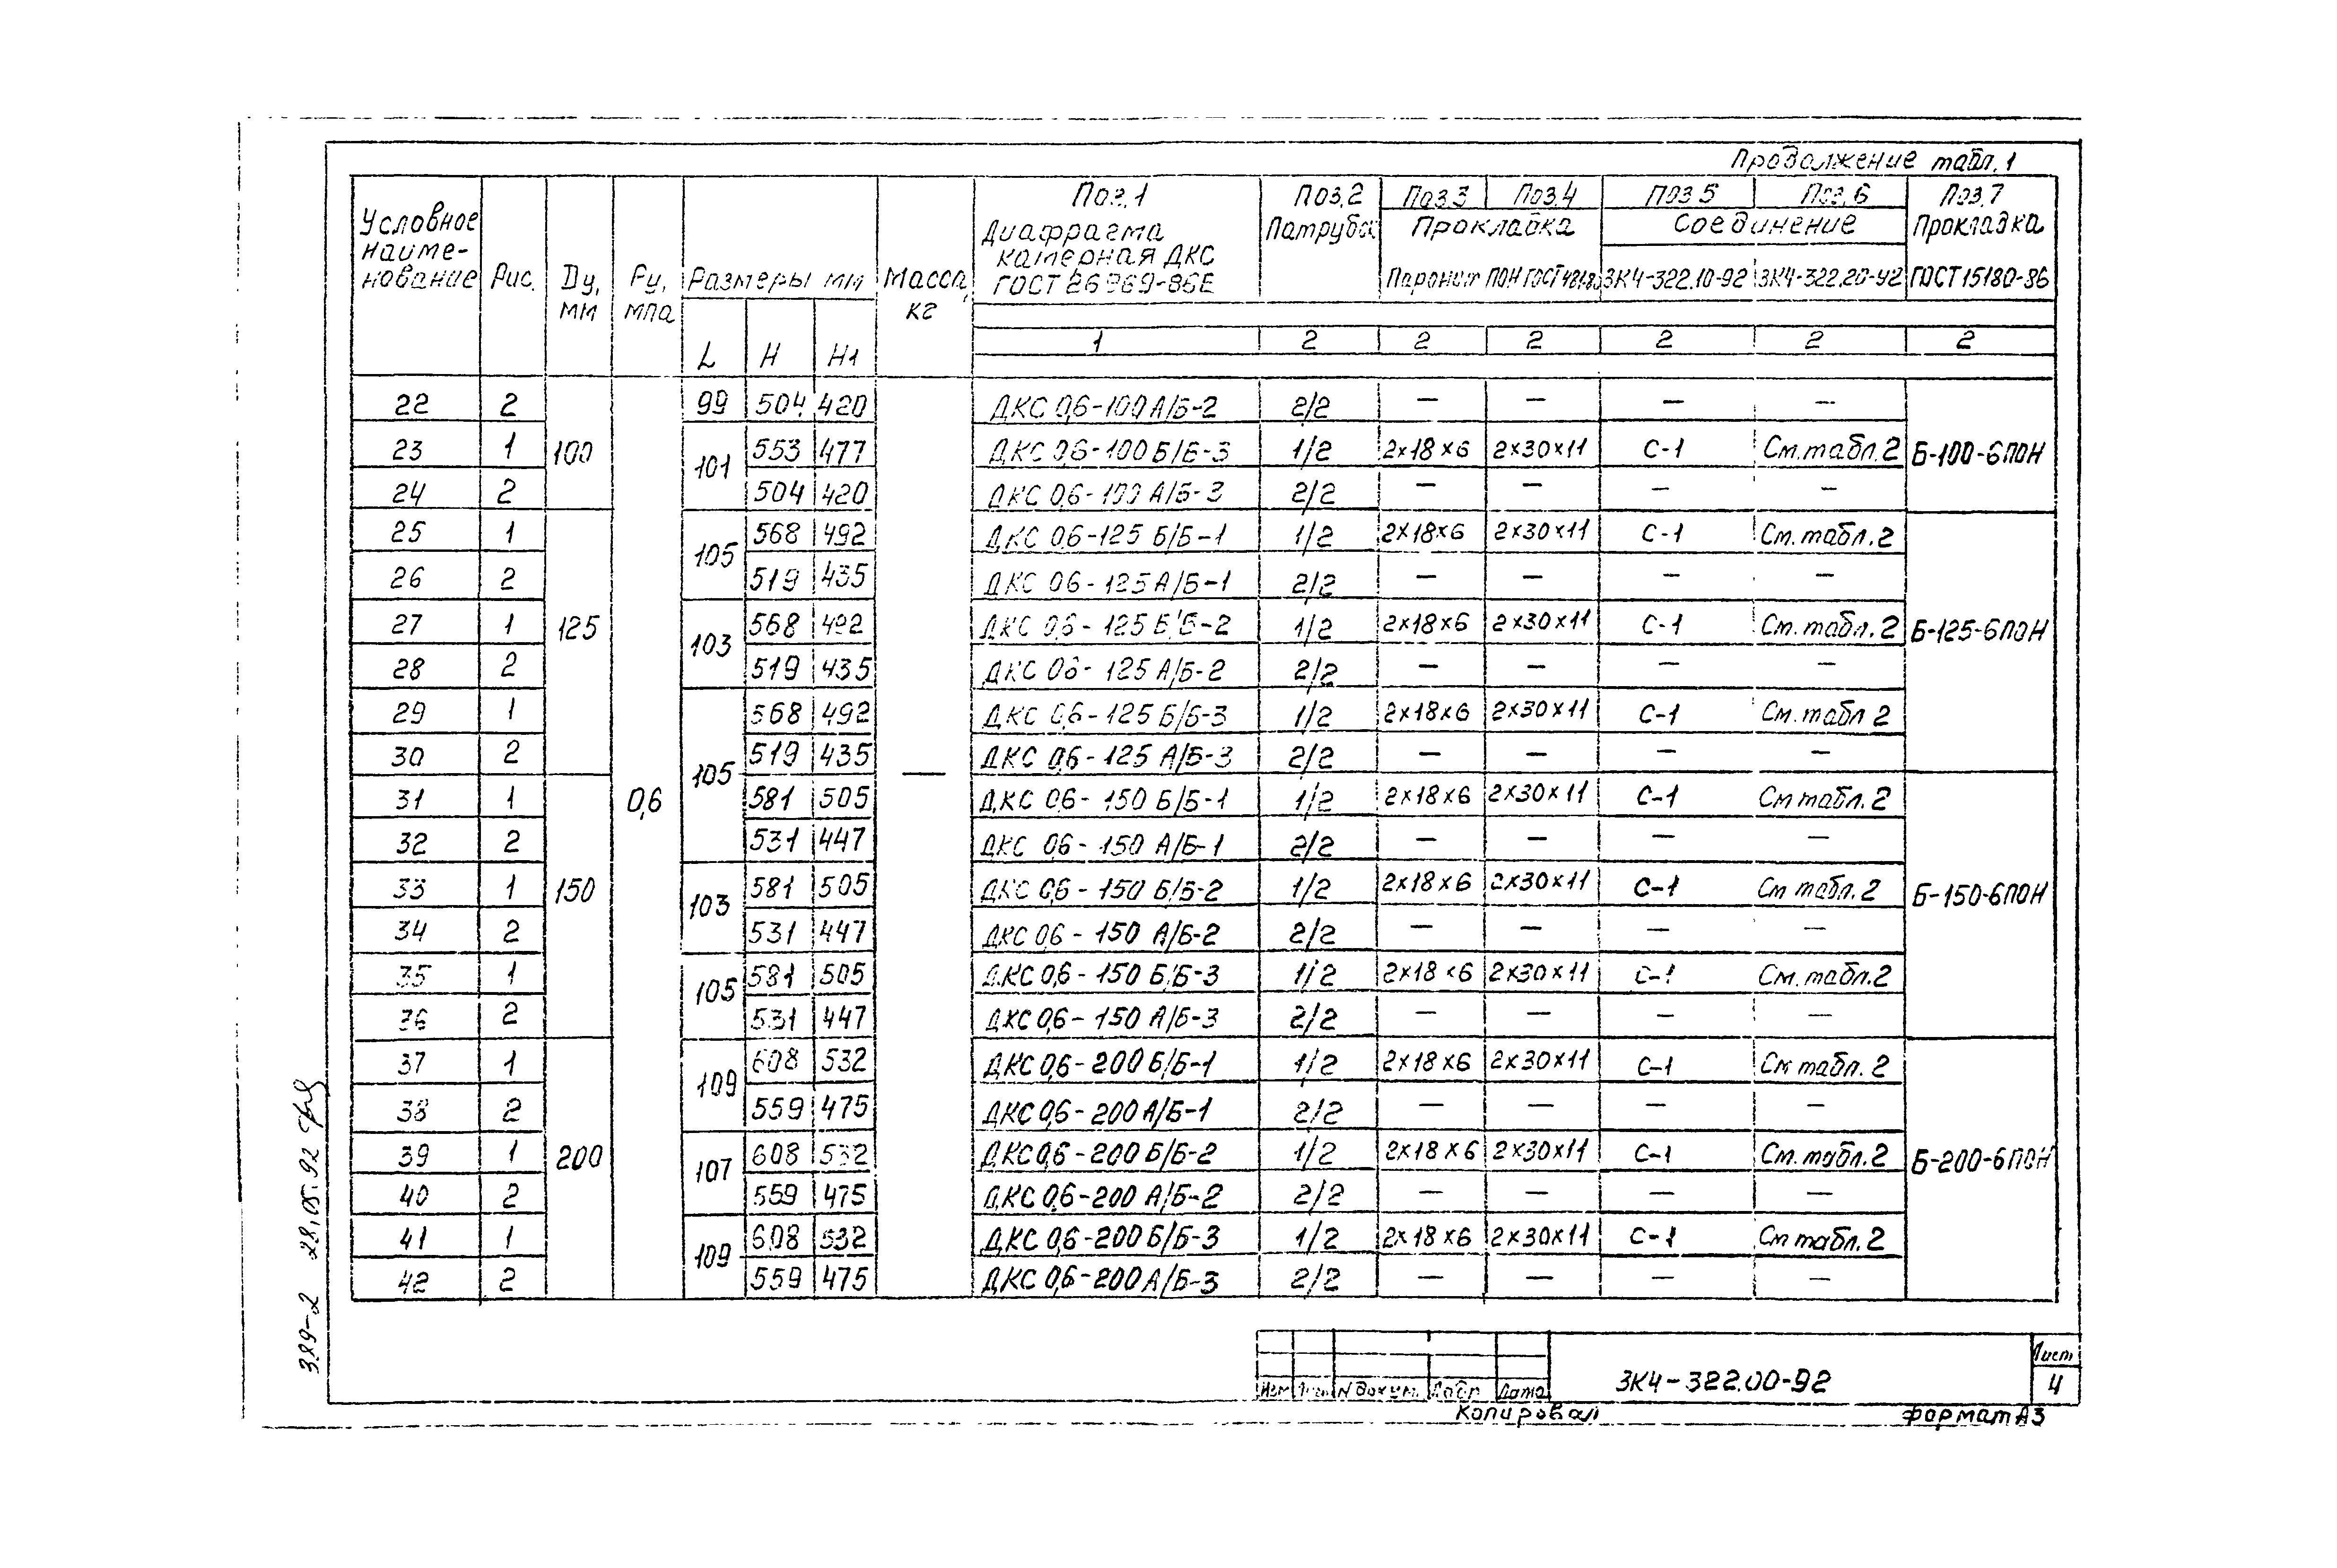 Продолжение табл.1
Условное наиме-нование Рис. Dу, мм Ру, мпа Размеры мм Масса, кг Поз.1 Диафрагма камерная ДКС ГОСТ 26969-86Е Поз.2 Патрубок Поз.3 Поз.4 Прокладка Паронит ПОН ГОСТ 481-80 Поз 5 Поз.6 Соединение ЗК4-322.10-92 ЗК4-322.20-92 Поз.7 Прокладка ГОСТ 15180-86
L H H1 1 2 2 2 2 2 2
22 2 100 0,6 99 504 420 — ДКС 0,6-100 А/Б-2 2/2 — — — — Б-100-6ПОН
23 1 101 553 477 ДКС 0,6-100 Б/Б-3 1/2 2×18×6 2×30×11 С-1 См.табл.2
24 2 504 420 ДКС 0,6-100 А/Б-3 2/2 — — — —
25 1 125 105 568 492 ДКС 0,6-125 Б/Б-1 1/2 2×18×6 2×30×11 С-1 См.табл.2 Б-125-6ПОН
26 2 519 435 ДКС 06-125 А/Б-1 2/2 — — — —
27 1 103 568 492 ДКС 0,6-125 Б/Б-2 1/2 2×18×6 2×30×11 С-1 См.табл.2
28 2 519 435 ДКС 06-125 А/Б-2 2/2 — — — —
29 1 105 568 492 ДКС 0,6-125 Б/Б-3 1/2 2×18×6 2×30×11 С-1 См.табл 2
30 2 519 435 ДКС 0,6-125 А/Б-3 2/2 — — — —
31 1 150 581 505 ДКС 0,6-150 Б/Б-1 1/2 2×18×6 2×30×11 С-1 См табл.2 Б-150-6ПОН
32 2 531 447 ДКС 0,6-150 А/Б-1 2/2 — — — —
33 1 103 581 505 ДКС 0,6-150 Б/Б-2 1/2 2×18×6 2×30×11 С-1 См табл.2
34 2 531 447 ДКС 0,6-150 А/Б-2 2/2 — — — —
35 1 105 581 505 ДКС 0,6-150 Б/Б-3 1/2 2×18×6 2×30×11 С-1 См.табл.2
36 2 531 447 ДКС 0,6-150 А/Б-3 2/2 — — — —
37 1 200 109 608 532 ДКС 0,6-200 Б/Б-1 1/2 2×18×6 2×30×11 С-1 См табл.2 Б-200-6ПОН
38 2 559 475 ДКС 0,6-200 А/Б-1 2/2 — — — —
39 1 107 608 532 ДКС 0,6-200 Б/Б-2 1/2 2×18×6 2×30×11 С-1 См.табл.2
40 2 559 475 ДКС 0,6-200 А/Б-2 2/2 — — — —
41 1 109 608 532 ДКС 0,6-200 Б/Б-3 1/2 2×18×6 2×30×11 С-1 См табл.2
42 2 559 475 ДКС 0,6-200 А/Б-3 2/2 — — — —
389-2 28.05.92
Изм Лист N докум. Подр Дата ЗК4-322.00-92 Лист 4
Копировал Формат А3